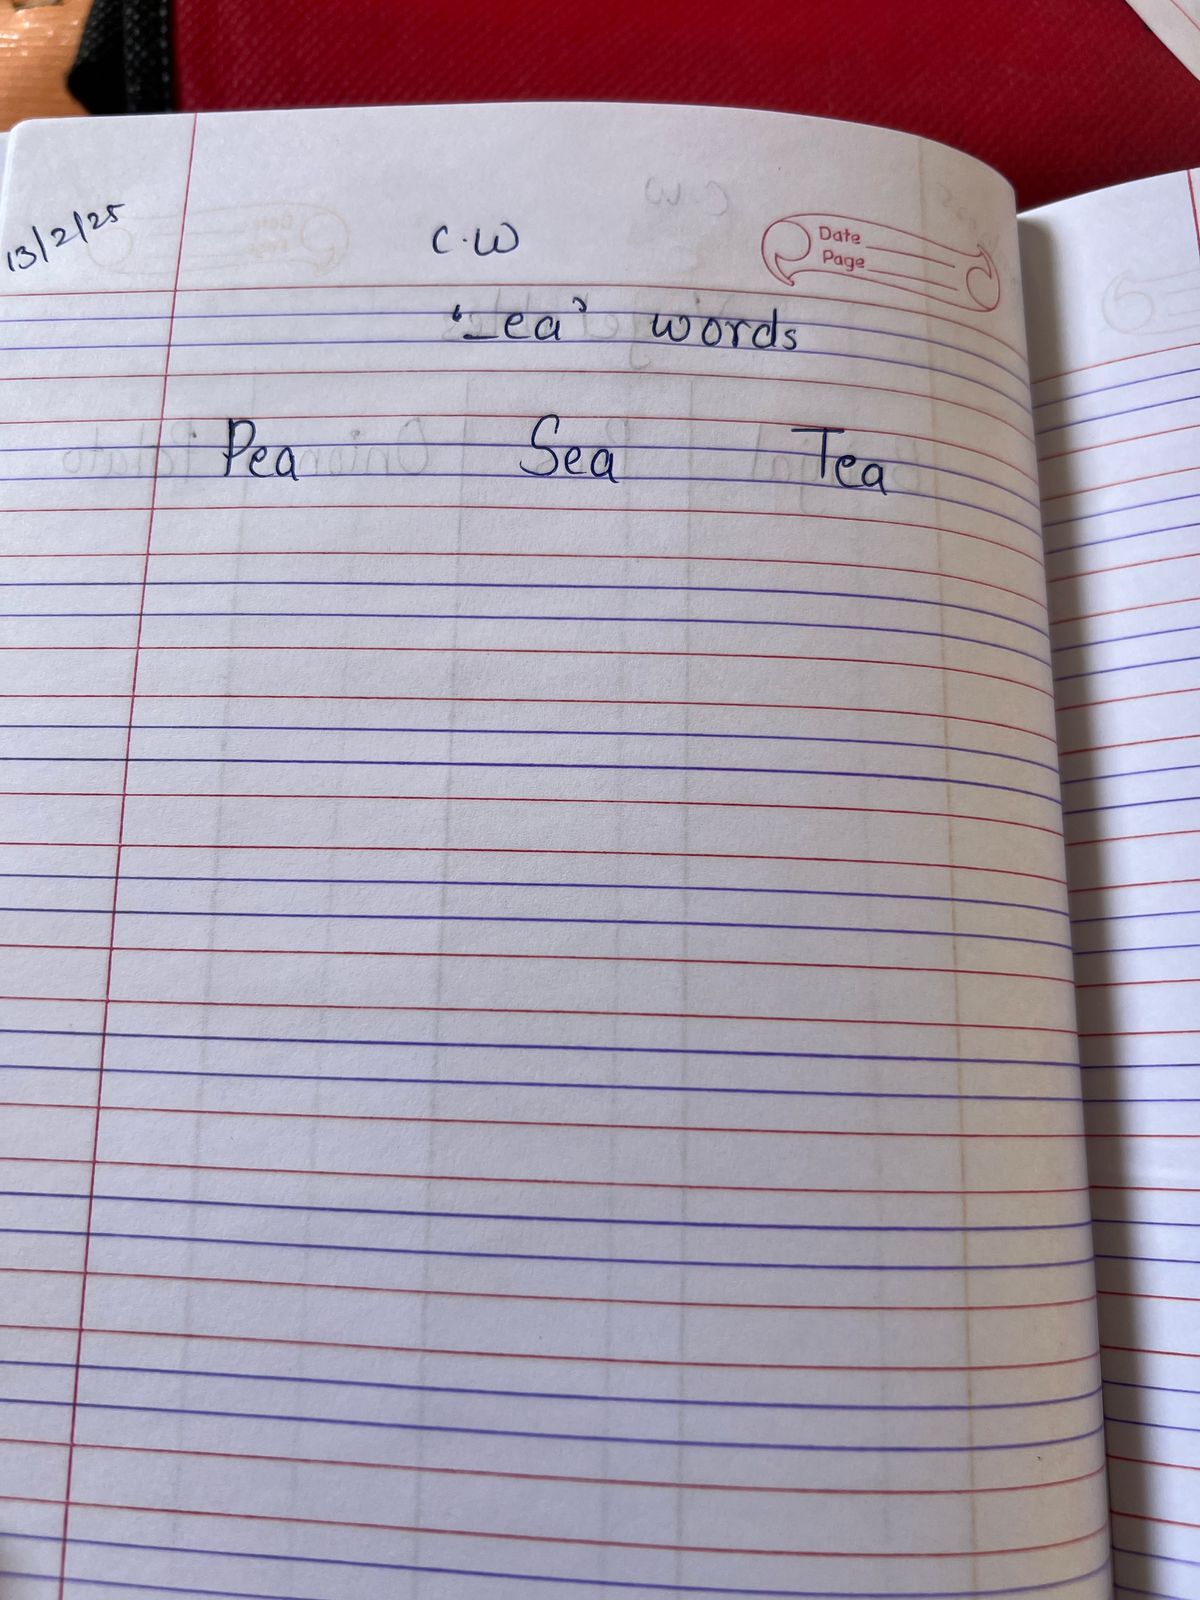 13/2/25
C.W
Date
Page
'_ea' words
Pea Sea Tea